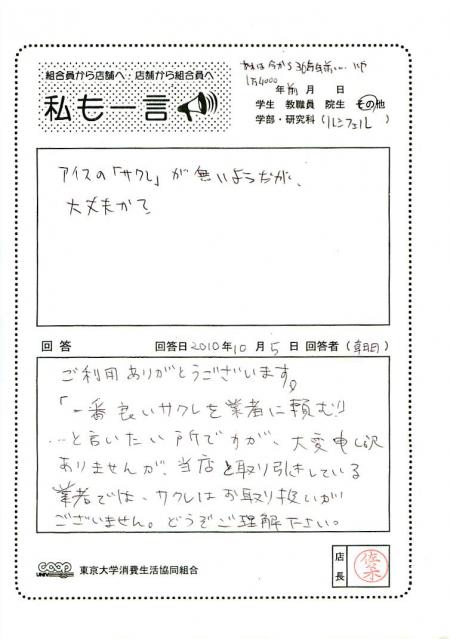 組合員から店舗へ・店舗から組合員へ
私も一言
あれは今から36万年前… いや
1万4000
年前 月 日
学生 教職員 院生 その他
学部・研究科(ルシフェル)
アイスの「サクレ」が無いようだが、
大丈夫かて
回答 回答日2010年10月5日 回答者(朝日)
ご利用ありがとうございます。
「一番良いサクレを業者に頼む!!」
…と言いたい所ですが、大変申し訳
ありませんが、当店と取り引きしている
業者では、サクレはお取り扱いが
ございません。どうぞご理解下さい。
UNIV. CO-OP 東京大学消費生活協同組合
店長